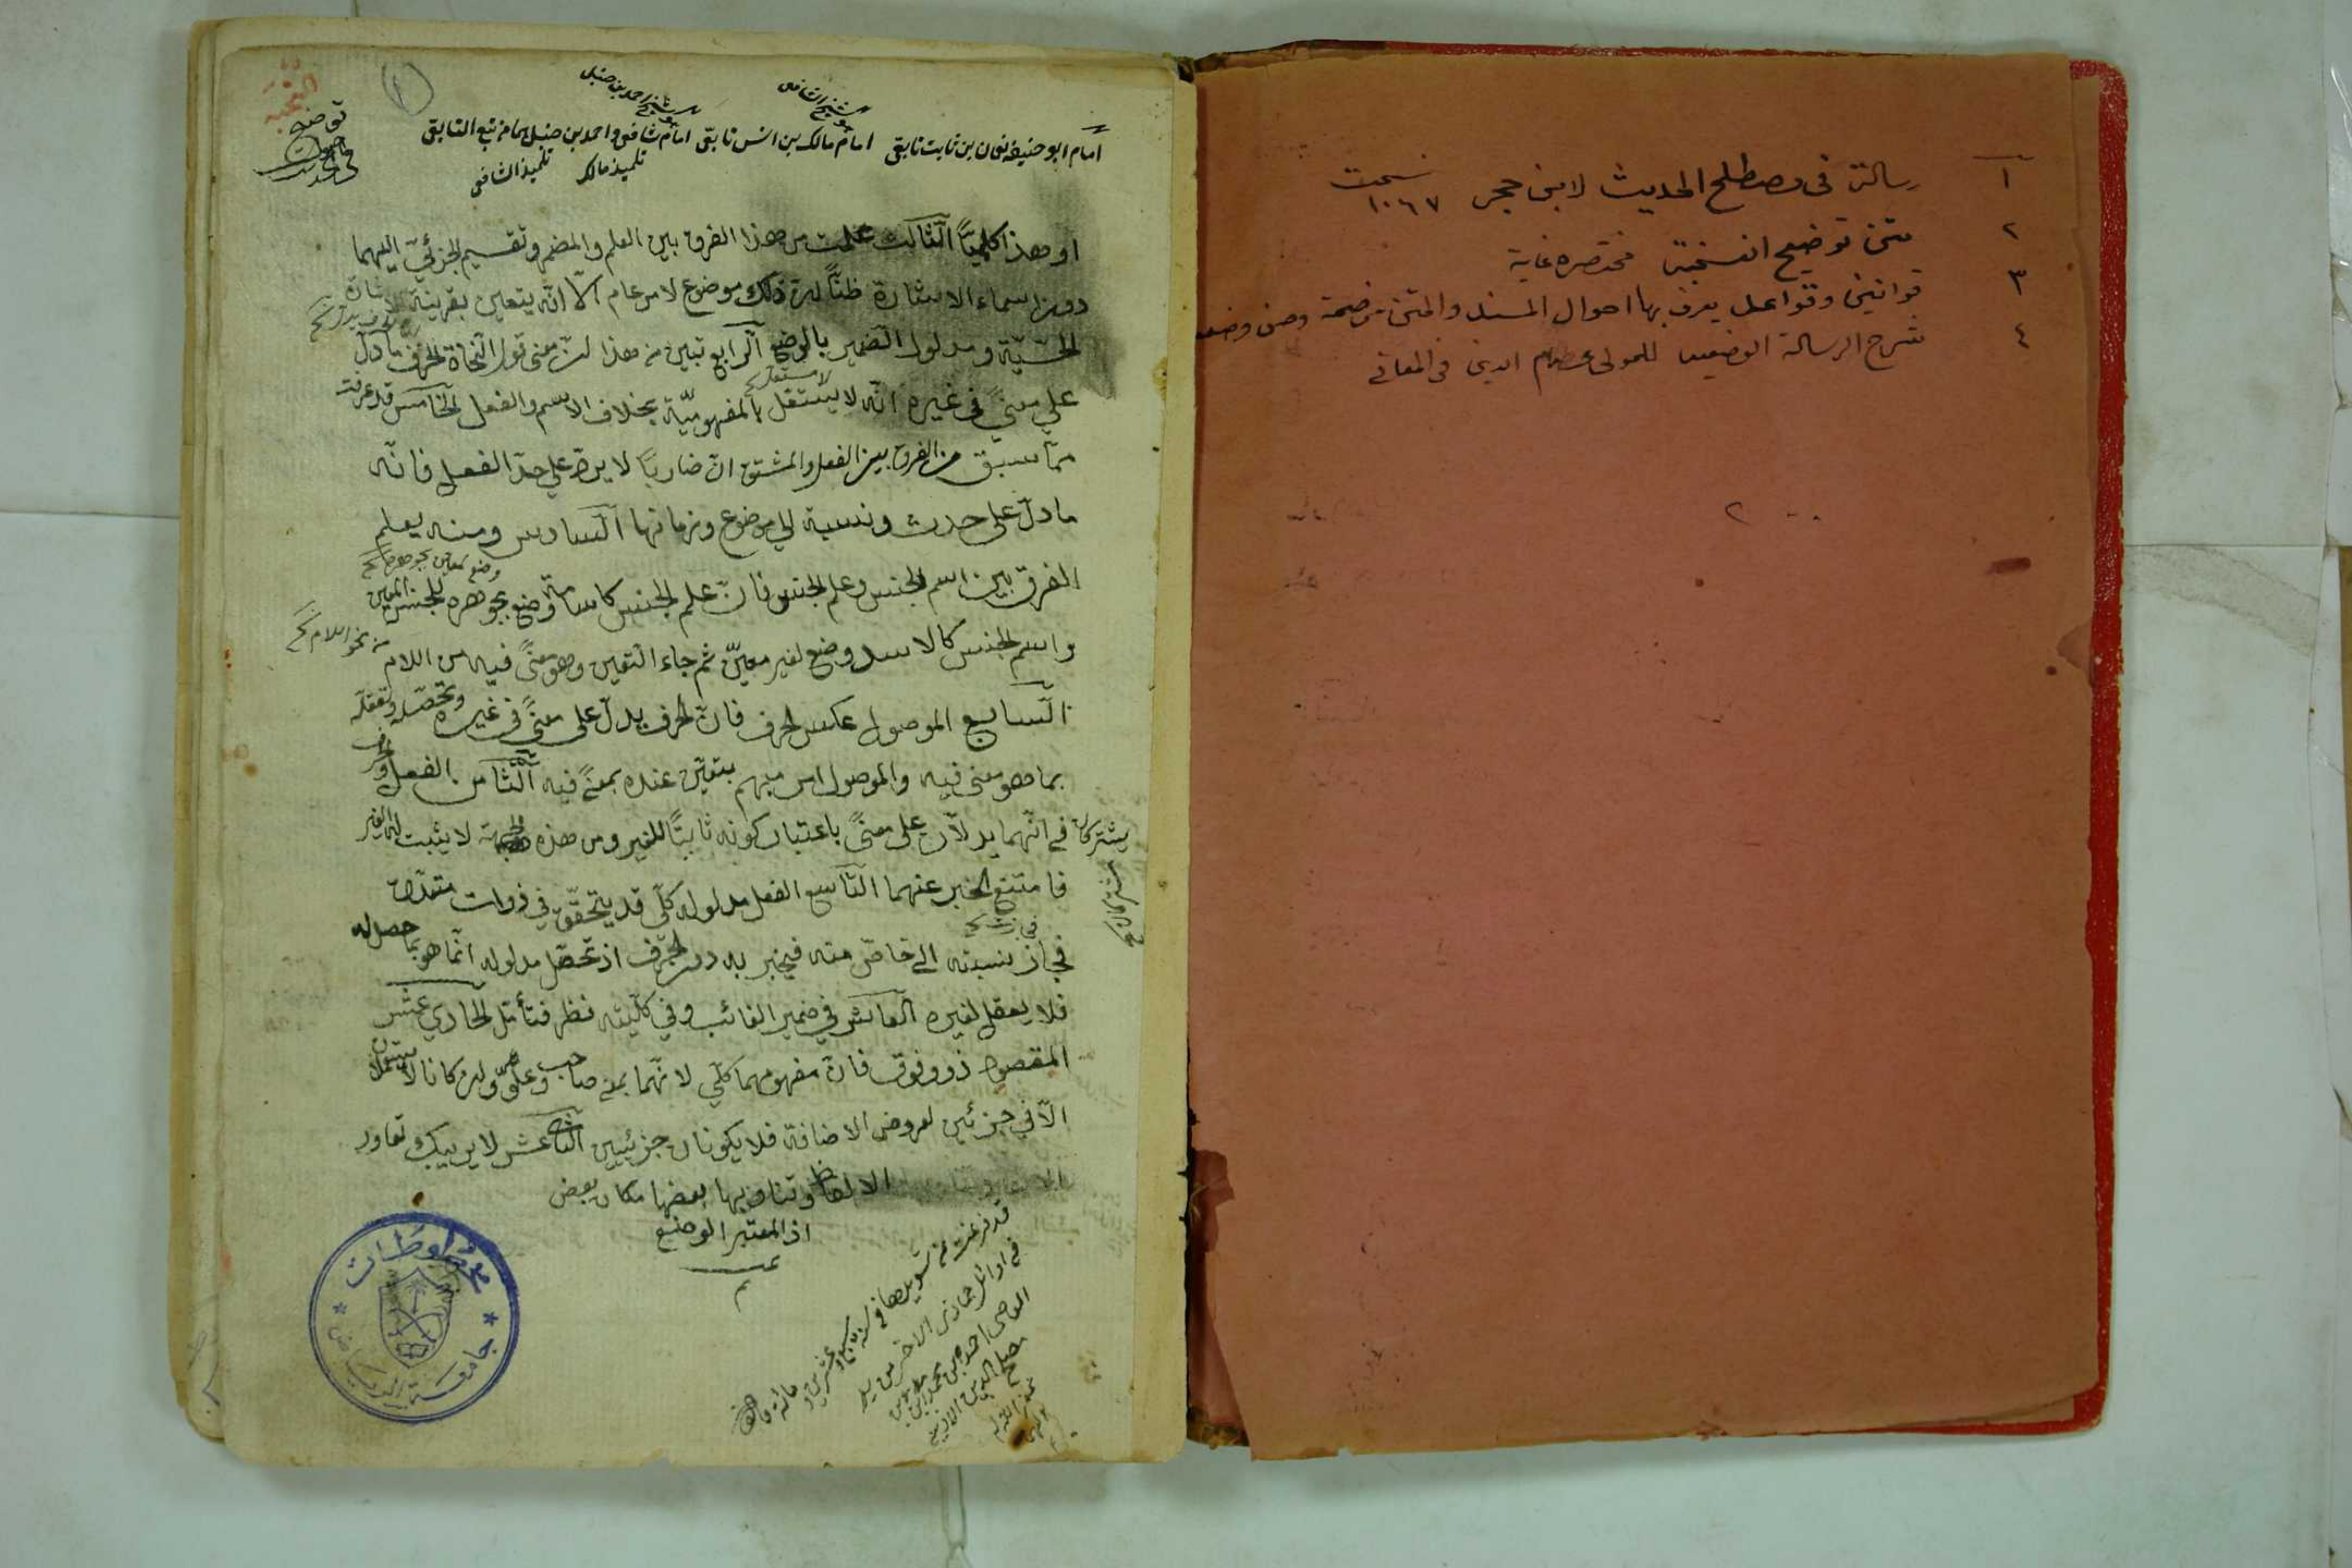 ١ رسالة فى مصطلح الحديث لابن حجر نسخت ١٠٦٧
٢ متن توضيح النخبة مختصره غاية
٣ قوانين وقواعد يعرف بها احوال المسند والمتن من صحة وحسن وضعف
٤ شرح الرسالة الوضعيه للمولى عصام الدين فى المعانى
٢
نخبه
توضيح
وشيخ الشافعى
وشيخ احمد بن حنبل
امام ابو حنيفه نعمان بن ثابت تابعى امام مالك بن انس تابعى امام شافعى واحمد بن حنبل هما من تبع التابعى
تلميذ مالك تلميذ الشافعى
او هذا كلميّاً الثالث علمت من هذا الفرق بين العلم والمضمر وتقسيم الجزئيّ اليهما
دون اسماء الاشارة ظنّاً ان ذلك موضوع لامر عام الّا انّه يتعين بقرينة الاشارة
الحسّيّة ومدلول الضمير بالوضع الرابع تبين من هذا ان معنى قول النحاة الحرف ما دلّ
على معنىً فى غيره انّه لا يستقل بالمفهوميّة بخلاف الاسم والفعل الخامس قد عرفت
ممّا سبق من الفرق بين الفعل والمشتق انّ ضاربًا لا يرد على حدّ الفعل فانّه
ما دلّ على حدث ونسبة الى موضوع وزمانها السادس ومنه يعلم
وضع لمعين بجوهره
الفرق بين اسم الجنس وعلم الجنس فانّ علم الجنس كاسامة وضع بجوهره للجنس المعين
واسم الجنس كالاسد وضع لغير معيّن ثم جاء التعين وهو معنىً فيه من اللام
من نحو اللام
السابع الموصول عكس الحرف فانّ الحرف يدلّ على معنىً فى غيره وتحصله وتعقله
بما هو معنى فيه والموصول امر مبهم يتعيّن عنده بمعنىً فيه الثامن الفعل والحرف
يشتركان فى انّهما يدلّان على معنىً باعتبار كونه ثابتًا للغير ومن هذه الجهة لا يثبت له الغير
فامتنع الخبر عنهما التاسع الفعل مدلوله كلّى قد يتحقّق فى ذوات متعدّدة
فجاز نسبته الى خاصّ منه فيخبر به دون الحرف اذ تحصّل مدلوله انّما هو بما حصل له
فلا يعقل لغيره العاشر فى ضمير الغائب وفى كلّيّته نظر فتأمّل الحادى عشر
المقصود ذو وفوق فانّ مفهومهما كلّى لانّهما بمعنى صاحب وعلوّ وان كانا لا يستعملان
الّا فى جزئين لعروض الاضافة فلا يكونان جزئيين الثانى عشر لا يريبك تعاور
الالفاظ وتناوبها بعضها مكان بعض
اذ المعتبر الوضع
تمت
م
قد فرغت من تسويدها فى
فى اوائل جمادى الاخر من يد
العاصى احمد بن محمد بن
مصلح الدين
مخطوطات
جامعة الرياض